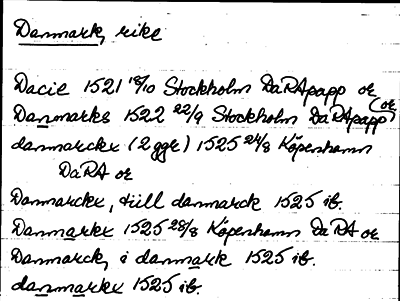 Danmark, rike
Dacie 1521 18/10 Stockholm DaRApapp or
Danmarks 1522 22/9 Stockholm DaRApapp (or
danmarckx (2 ggr) 1525 24/8 Köpenhamn
DaRA or
Danmarckx, till danmarck 1525 ib.
Danmarkx 1525 28/8 Köpenhamn DaRA or
Danmarck, i danmark 1525 ib.
danmarkx 1525 ib.